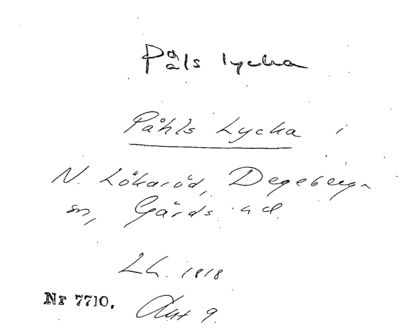 Påls lycka
Påhls Lycka i
N. Lökaröd, Degeberga
sn, Gärds hd.
Lh. 1818
Nr 7710. Akt 9.